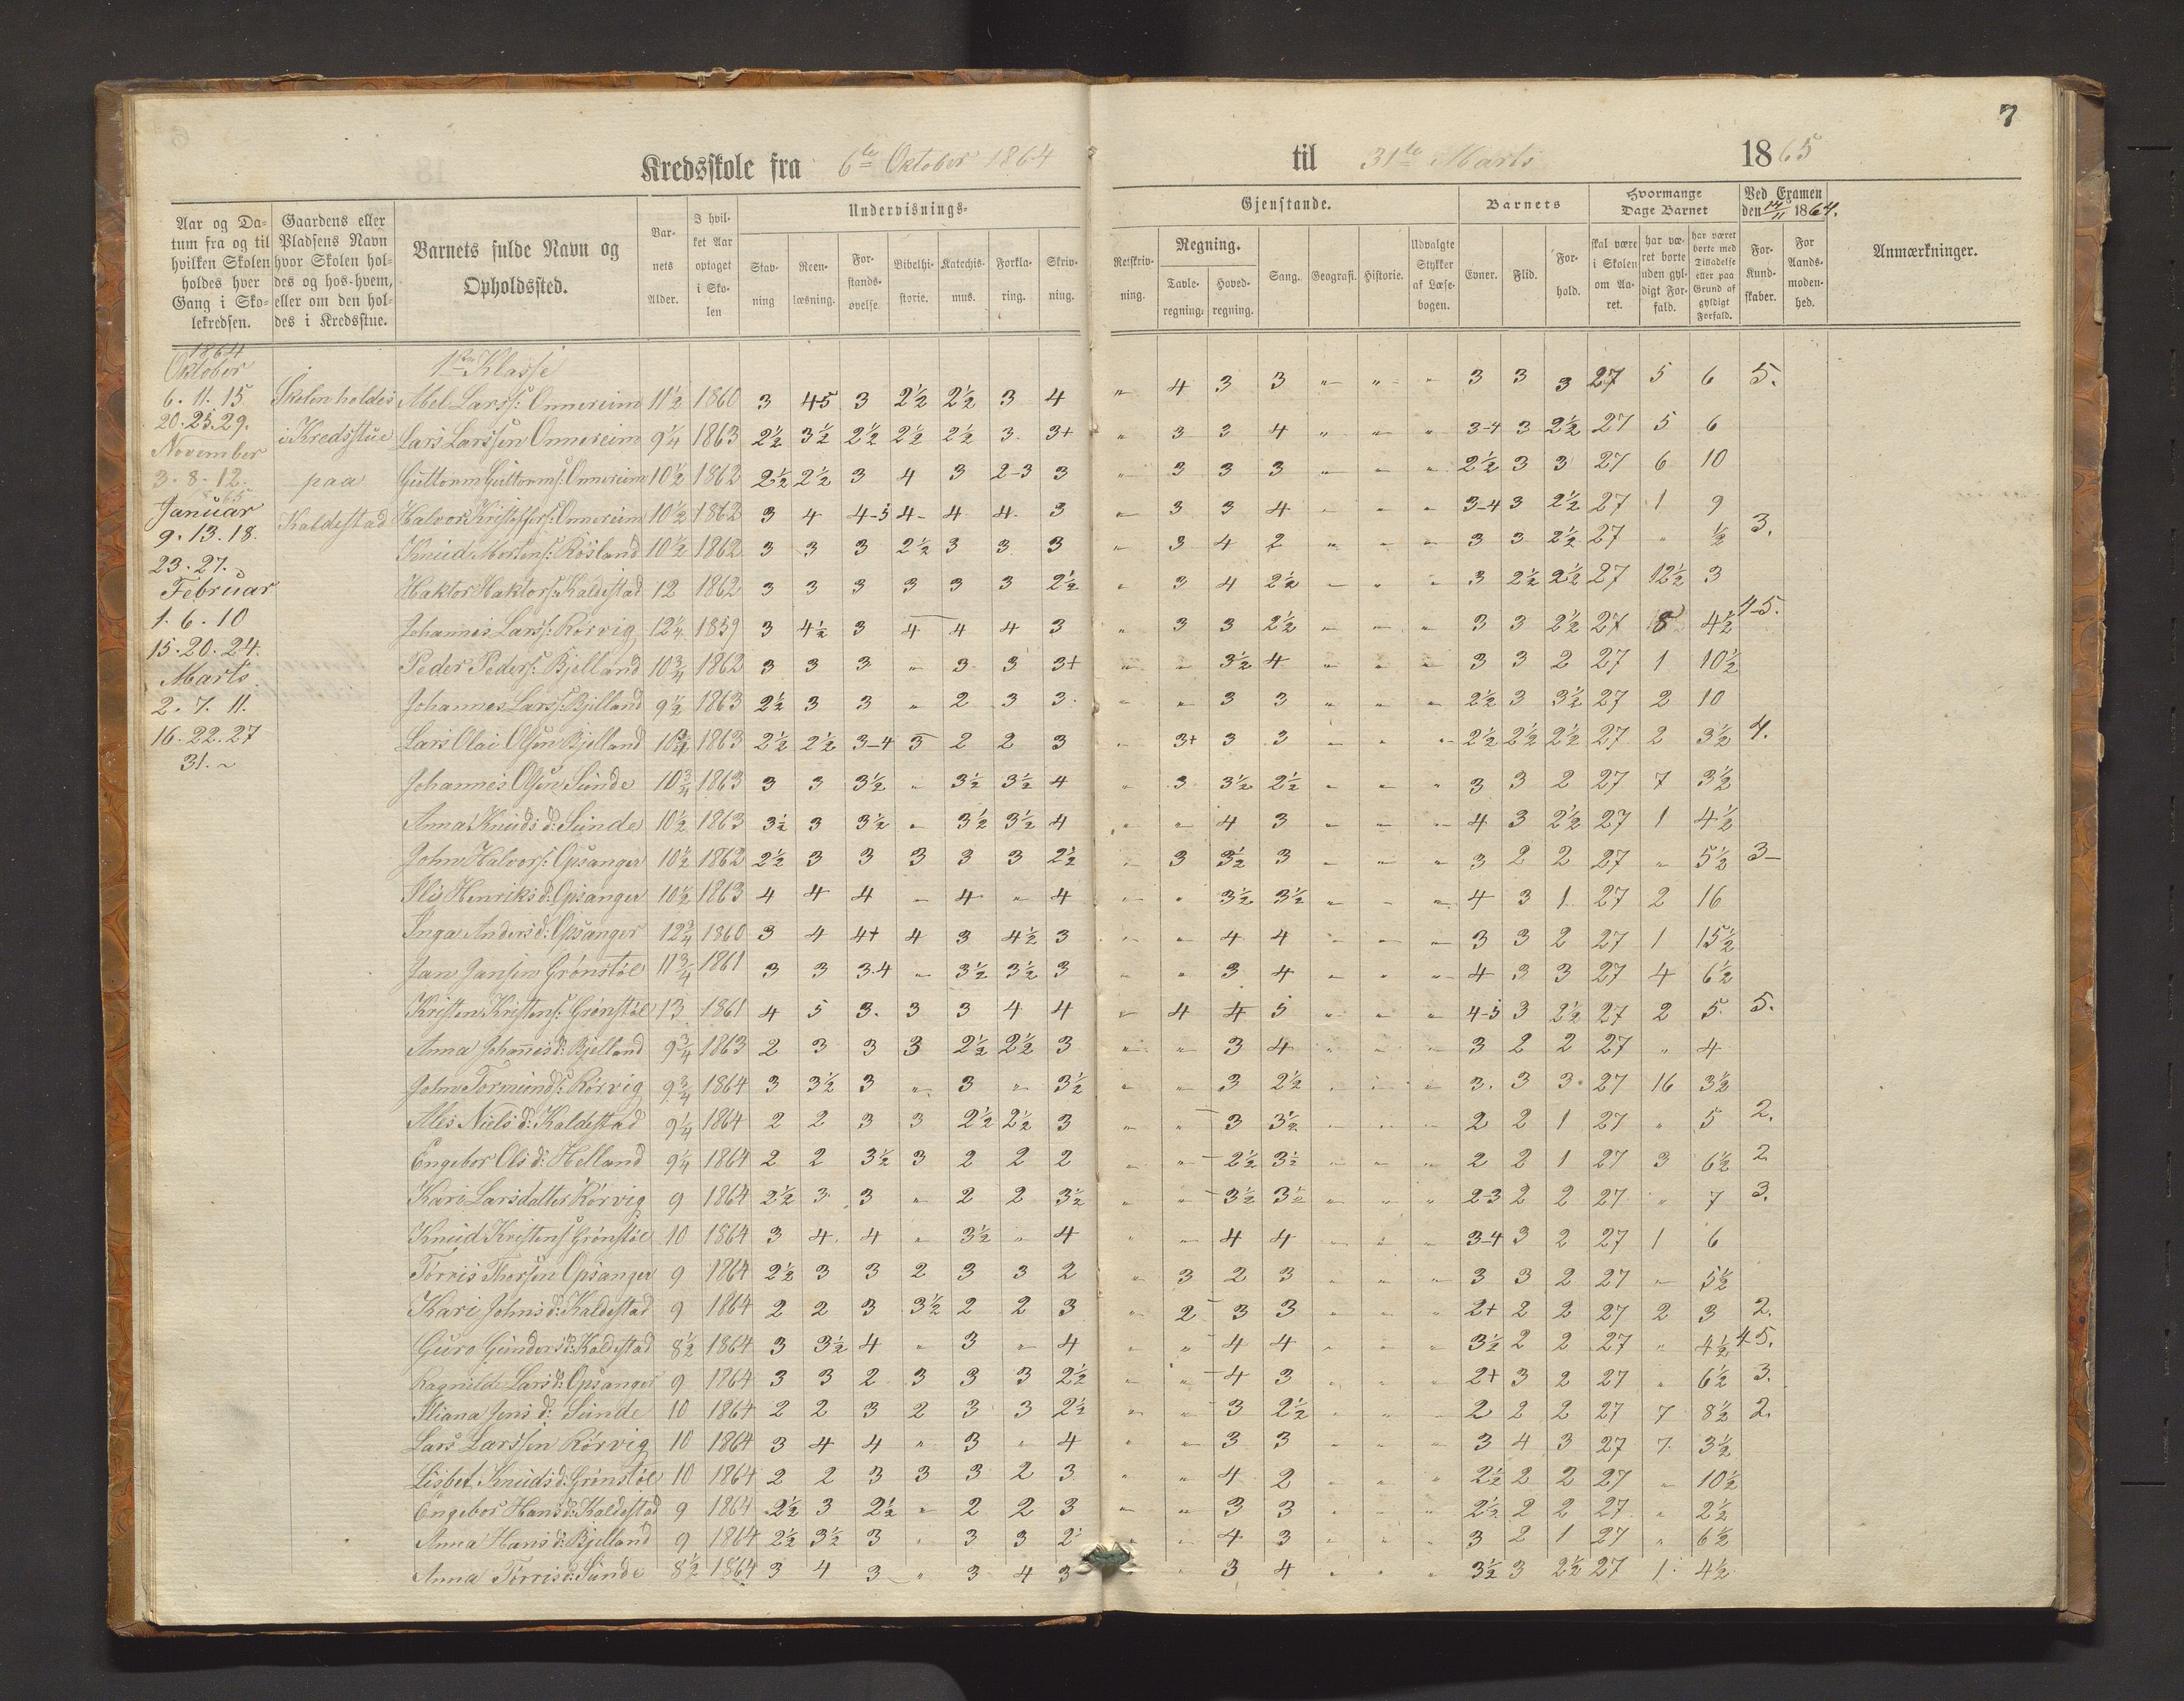 7
Kredsskole fra 6te Oktober 1864 til 31te Marts 1865
Aar og Datum fra og til hvilken Skolen holdes hver Gang i Skolekredsen.
Gaardens eller Pladsens Navn hvor Skolen holdes og hos hvem, eller om den holdes i Kredsstue.
Barnets fulde Navn og Opholdssted.
Barnets Alder.
I hvilket Aar optaget i Skolen
Undervisnings-
Stavning
Reenlæsning.
Forstandsøvelse.
Bibelhistorie.
Katechismus.
Forklaring.
Skrivning.
Gjenstande.
Retskrivning.
Regning.
Tavleregning.
Hovedregning.
Sang.
Geografi.
Historie.
Udvalgte Stykker af Læsebogen.
Barnets
Evner.
Flid.
Forhold.
Hvormange Dage Barnet
skal være i Skolen om Aaret.
har været borte uden gyldigt Forfald.
har været borte med Tilladelse eller paa Grund af gyldigt Forfald.
Ved Examen den 14/11 1864.
For Kundskaber.
For Aandsmodenhed.
Anmærkninger.
1864
Oktober
6. 11. 15
20. 25. 29.
November
3. 8. 12.
65
Januar
9. 13. 18.
23. 27.
Februar
1. 6. 10
15. 20. 24.
Marts
2. 7. 11.
16. 22. 27
31. ~
Skolen holdes
i Kredsstue
paa
Kaldestad
1ste Klasse
Abel Larss: Onnereim 11½ 1860 3 4-5 3 2½ 2½ 3 4 " 4 3 3 " " " 3 3 3 27 5 6 5.
Lars Larssen Onnereim 9¼ 1863 2½ 3½ 2½ 2½ 2½ 3. 3+ " 3 3 4 " " " 3-4 3 2½ 27 5 6
Guttorm Guttorms: Onnereim 10½ 1862 2½ 2½ 3 4 3 2-3 3 " 3 3 3 " " " 2½ 3 3 27 6 10
Halvor Kristoffers: Onnereim 10½ 1862 3 4 4-5 4- 4 4. 3 " 3 3 4 " " " 3-4 3 2½ 27 1 9
Knud Mortens: Røsland 10½ 1862 3 3 3 2½ 3 3 3 " 3 4 2 " " " 3 3 2½ 27 " ½ 3.
Haktor Haktors: Kaldestad 12 1862 3 3 3 3 3 3 2½ " 3 4 2½ " " " 3 2½ 2½ 27 12½ 3
Johannes Larss: Rørvig 12¼ 1859 3 4½ 3 4 4 4 3 " 3 3 2½ " " " 3 3 2½ 27 8 4½ 4-5.
Peder Peders: Bjelland 10¾ 1862 3 3 3 " 3 3 3+ " " 3½ 4 " " " 3 3 2 27 1 10½
Johannes Larss: Bjelland 9½ 1863 2½ 3 3 " 2 3 3. " " 3 3 " " " 2½ 3 3½ 27 2 10
Lars Olai Olsen Bjelland 10¾ 1863 2½ 2½ 3-4 3 2 2 3 " 3+ 3 3 " " " 2½ 2½ 2½ 27 2 3½ 4.
Johannes Olsen Sunde 10¾ 1863 3 3 3½ " 3½ 3½ 4 " 3 3½ 2½ " " " 3 3 2 27 7 3½
Anna Knudsd: Sunde 10½ 1863 3½ 3 3½ " 3½ 3½ 4 " " 4 3 " " " 4 3 2½ 27 1 4½
John Halvors: Opsanger 10½ 1862 2½ 3 3 3 3 3 2½ " 3 3½ 3 " " " 3 2 2 27 " 5½ 3-
Henriksd: Opsanger 10½ 1863 4 4 4 " 4 " 4 " " 3½ 3½ " " " 4 3 1 27 2 16
Inga Andersd: Opsanger 12¾ 1860 3 4 4+ 4 3 4½ 3 " " 4 4 " " " 3 3 2 27 1 15½
Jan Jansen Grønstøl 11¾ 1861 3 3 3-4 " 3½ 3½ 3 " " 3 4 " " " 4 3 3 27 4 6½
Kristen Kristens: Grønstøl 13 1861 4 5 3. 3 3 4 4 " 4 4 5 " " " 4-5 3 2½ 27 2 5 5.
Anna Johannesd: Bjelland 9¾ 1863 2 3 3 3 2½ 2½ 3 " " 3 4 " " " 3 2 2 27 " 4
John Tormunds: Rørvig 9¾ 1864 3 3½ 3 " 3 " 3½ " " 3 2½ " " " 3. 3 3 27 16 3½
Nielsd: Kaldestad 9¼ 1864 2 2 3 3 2½ 2½ 3 " " 3 3½ " " " 2 2 1 27 " 5 2.
Engebor Olsd: Helland 9¼ 1864 2 2 3½ 3 2 2 2 " " 2½ 3½ " " " 2 2 1 27 3 6½ 2
Kari Larsdatter Rørvig 9 1864 2½ 3 3 " 2 2 3½ " " 3½ 3½ " " " 2-3 2 2 27 " 7 3.
Knud Kristens: Grønstøl 10 1864 3 4 4 " 3½ " 4 " " 4 4 " " " 3-4 3 2 27 1 6
Torris Thorsen Opsanger 9 1864 2½ 3 3 2 3 3 2 " 3 2 3 " " " 3 3 2 27 " 5½
Kari Johnsd: Kaldestad 9 1864 2 2 3 3½ 2 2 3 " 2 3 3 " " " 2+ 2 2 27 2 3 2.
Guro Gundersd: Kaldestad 8½ 1864 3 3½ 4 " 3 " 4 " " 4 4 " " " 3½ 2 2 27 " 4½ 4-5.
Ragnilde Larsd: Opsanger 9 1864 3 3 2 3 3 3 2½ " " 4 3 " " " 2+ 3 2 27 " 6½ 3.
Iliana Jensd: Sunde 10 1864 2 2 3 2 3 3 2½ " " 3 2½ " " " 2 2 2 27 7 8½ 2.
Lars Larssen Rørvig 10 1864 3 4 4 " 3 " 4 " " 3 3 " " " 3 4 3 27 7 3½
Lisbet Knudsd: Grønstøl 10 1864 2 2 3 3 3 2 3 " " 4 2 " " " 2½ 2 2 27 " 10½
Engebor Hansd: Kaldestad 9 1864 2½ 3 2½ " 2 2 3 " " 3 3 " " " 2½ 2 2 27 " 2½
Anna Hansd: Bjelland 9 1864 2½ 3½ 3 " 3 3 2 " " 4 3 " " " 3 2 1 27 " 6½
Anna Torrisd: Sunde 8½ 1864 3 4 3 " 3 4 3 " 3 4 " " " 3½ 3 2½ 27 1 4½